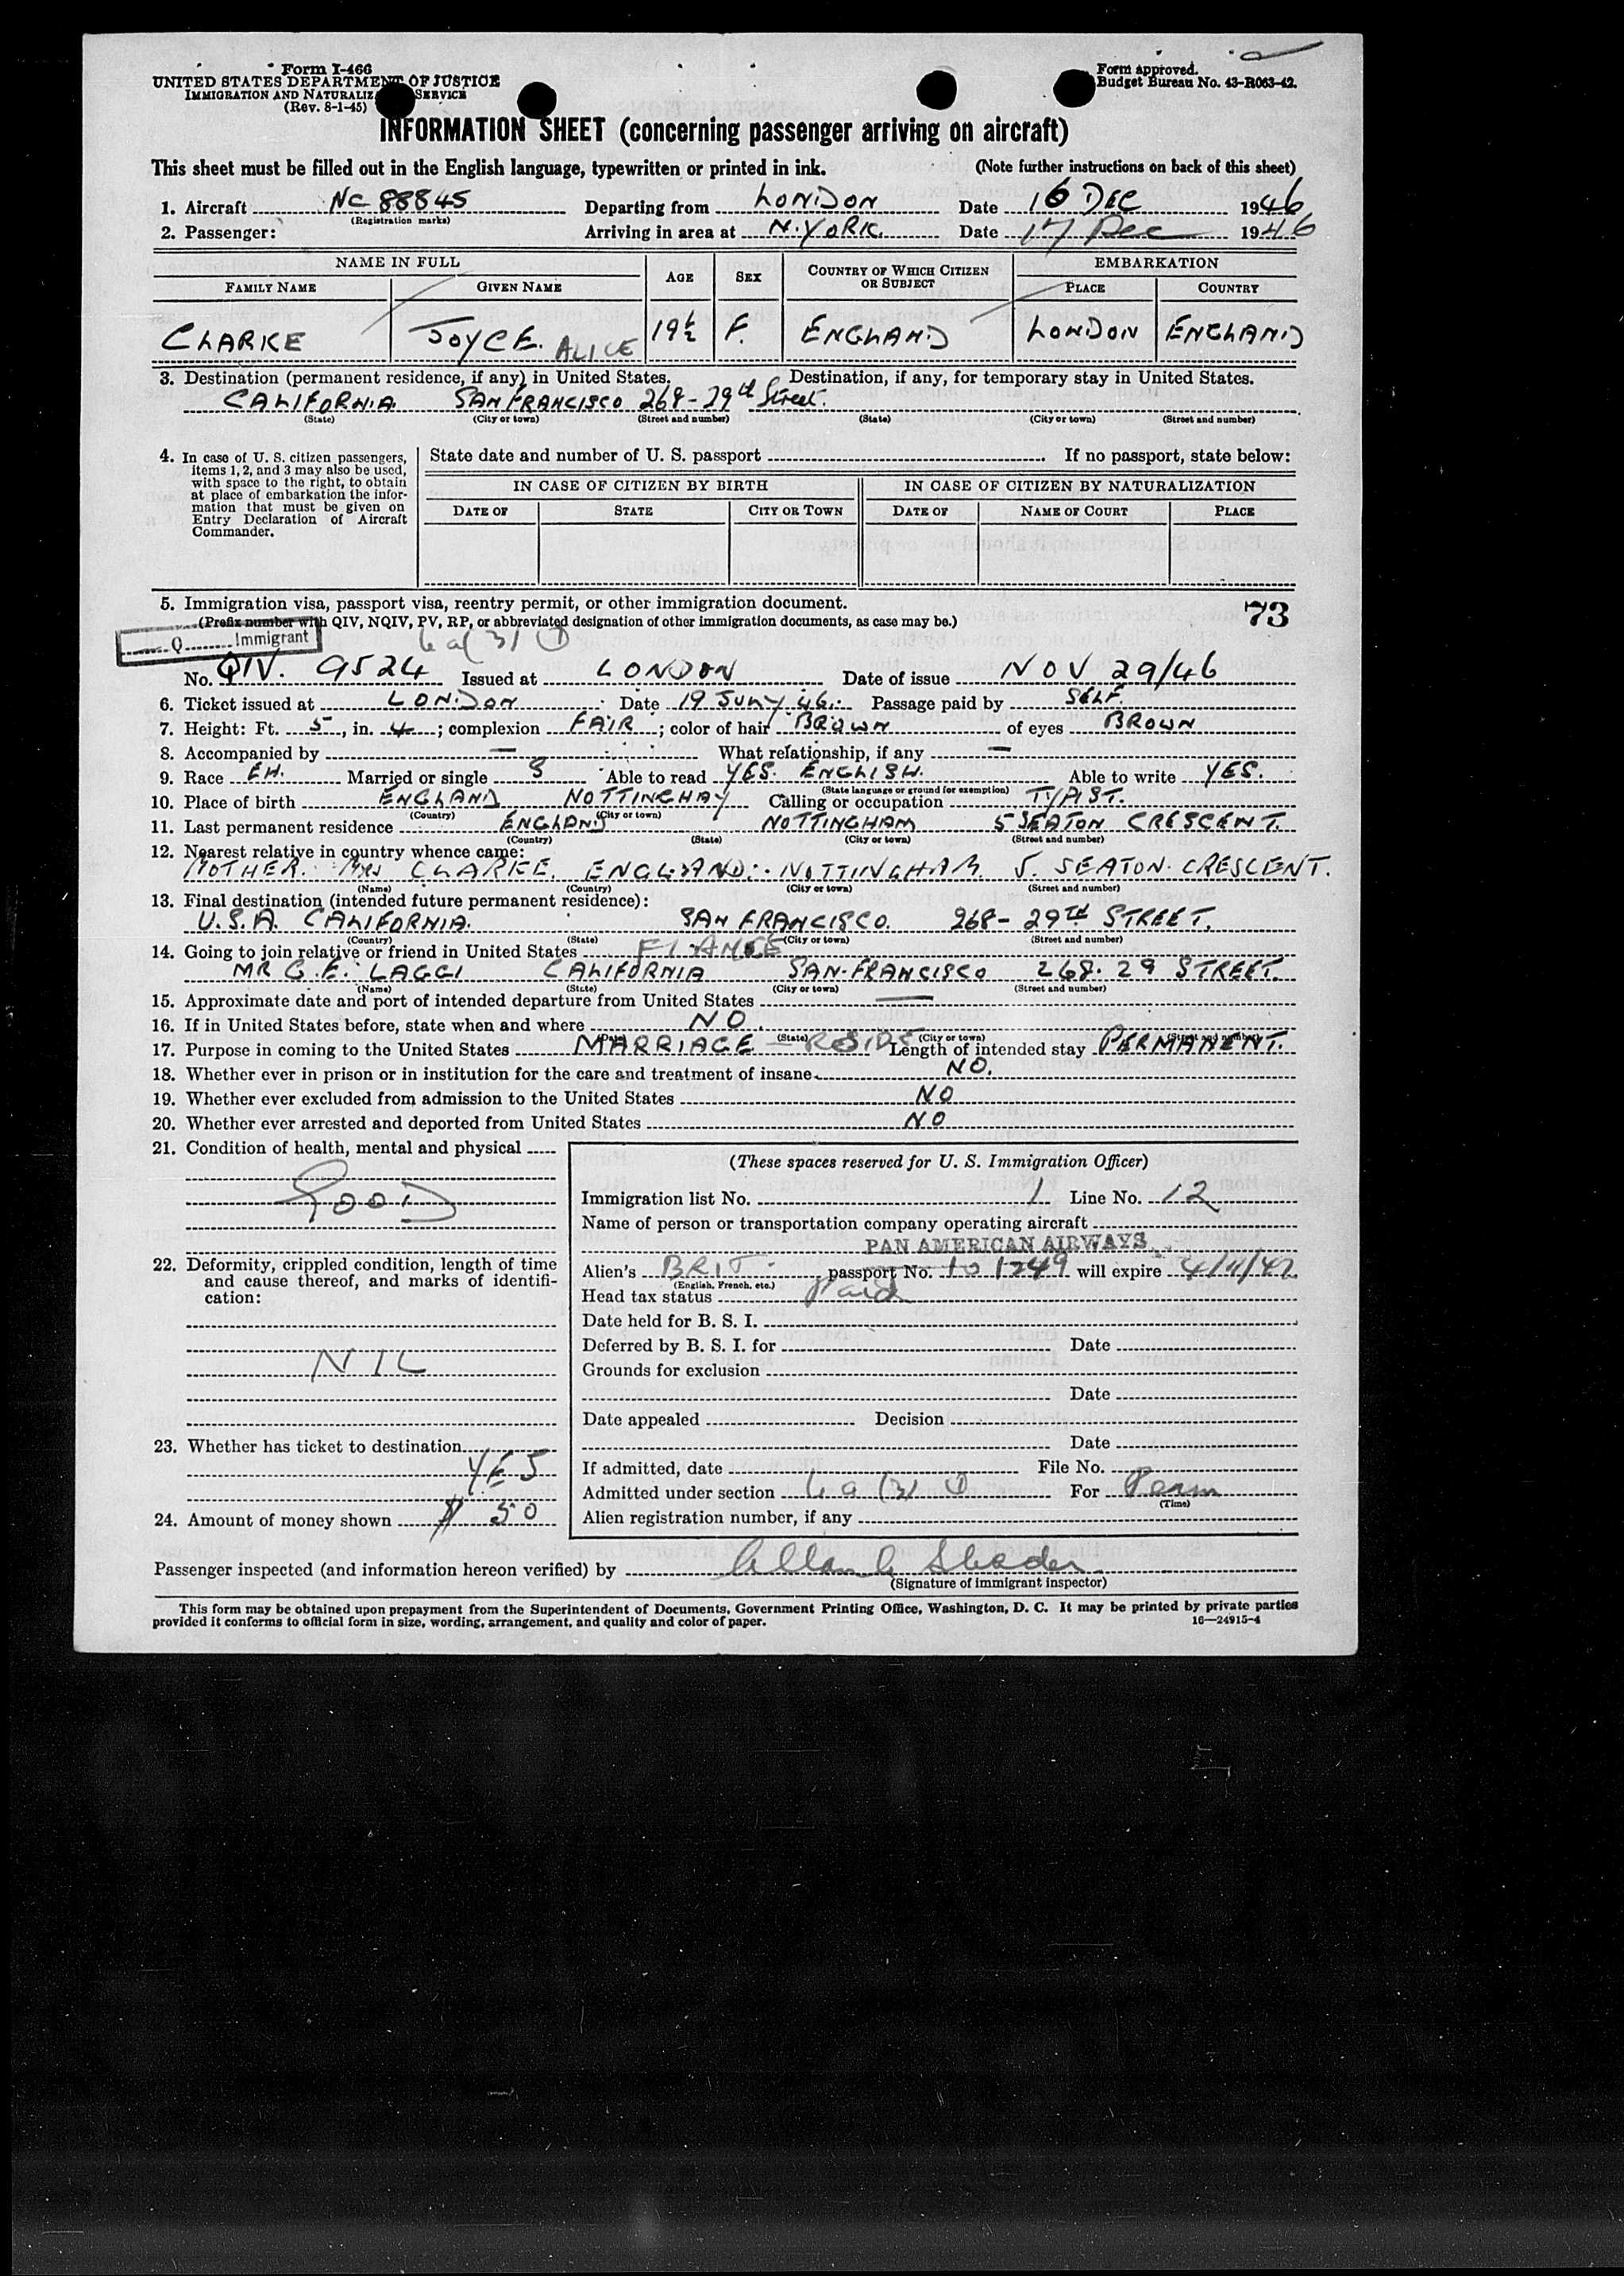 Form I-466
UNITED STATES DEPARTMENT OF JUSTICE
IMMIGRATION AND NATURALIZ SERVICE
(Rev. 8-1-45)
Form approved.
Budget Bureau No. 43-R063-42.
INFORMATION SHEET (concerning passenger arriving on aircraft)
This sheet must be filled out in the English language, typewritten or printed in ink. (Note further instructions on back of this sheet)
1. Aircraft NC 88845 Departing from LONDON Date 16 DEC 1946
(Registration marks)
2. Passenger: Arriving in area at N. YORK. Date 17 Dec 1946
NAME IN FULL AGE SEX COUNTRY OF WHICH CITIZEN OR SUBJECT EMBARKATION
FAMILY NAME GIVEN NAME PLACE COUNTRY
CLARKE JOYCE. ALICE 19½ F. ENGLAND LONDON ENGLAND
3. Destination (permanent residence, if any) in United States. Destination, if any, for temporary stay in United States.
CALIFORNIA SAN FRANCISCO 268-29th Street.
(State) (City or town) (Street and number) (State) (City or town) (Street and number)
4. In case of U. S. citizen passengers, items 1, 2, and 3 may also be used, with space to the right, to obtain at place of embarkation the information that must be given on Entry Declaration of Aircraft Commander.
State date and number of U. S. passport If no passport, state below:
IN CASE OF CITIZEN BY BIRTH IN CASE OF CITIZEN BY NATURALIZATION
DATE OF STATE CITY OR TOWN DATE OF NAME OF COURT PLACE
5. Immigration visa, passport visa, reentry permit, or other immigration document. 73
(Prefix number with QIV, NQIV, PV, RP, or abbreviated designation of other immigration documents, as case may be.)
Q Immigrant
No. QIV. 9524 Issued at LONDON Date of issue NOV 29/46
6. Ticket issued at LONDON Date 19 JULY 46. Passage paid by SELF.
7. Height: Ft. 5, in. 4; complexion FAIR; color of hair BROWN of eyes BROWN
8. Accompanied by — What relationship, if any —
9. Race EH. Married or single S Able to read YES. ENGLISH. Able to write YES.
(State language or ground for exemption)
10. Place of birth ENGLAND NOTTINGHAM Calling or occupation TYPIST.
(Country) (City or town)
11. Last permanent residence ENGLAND NOTTINGHAM 5 SEATON CRESCENT.
(Country) (State) (City or town) (Street and number)
12. Nearest relative in country whence came:
MOTHER. Mrs CLARKE. ENGLAND. NOTTINGHAM. 5. SEATON. CRESCENT.
(Name) (Country) (City or town) (Street and number)
13. Final destination (intended future permanent residence):
U.S.A. CALIFORNIA. SAN FRANCISCO. 268-29TH STREET.
(Country) (State) (City or town) (Street and number)
14. Going to join relative or friend in United States FIANCE
MR G.E. LAGGI CALIFORNIA SAN-FRANCISCO 268. 29 STREET.
(Name) (State) (City or town) (Street and number)
15. Approximate date and port of intended departure from United States —
16. If in United States before, state when and where NO.
(Date) (State) (City or town) (Street and number)
17. Purpose in coming to the United States MARRIAGE - RESIDE Length of intended stay PERMANENT.
18. Whether ever in prison or in institution for the care and treatment of insane NO.
19. Whether ever excluded from admission to the United States NO
20. Whether ever arrested and deported from United States NO
21. Condition of health, mental and physical
GOOD
22. Deformity, crippled condition, length of time and cause thereof, and marks of identification:
NIL
23. Whether has ticket to destination
YES
24. Amount of money shown $ 50
(These spaces reserved for U. S. Immigration Officer)
Immigration list No. 1 Line No. 12
Name of person or transportation company operating aircraft
PAN AMERICAN AIRWAYS
Alien's BRIT. passport No. 101249 will expire 4/11/47
(English, French, etc.)
Head tax status Paid
Date held for B. S. I.
Deferred by B. S. I. for Date
Grounds for exclusion
Date
Date appealed Decision
Date
If admitted, date File No.
Admitted under section 6a (3) ① For Perm
(Time)
Alien registration number, if any
Passenger inspected (and information hereon verified) by
(Signature of immigrant inspector)
This form may be obtained upon prepayment from the Superintendent of Documents, Government Printing Office, Washington, D. C. It may be printed by private parties
provided it conforms to official form in size, wording, arrangement, and quality and color of paper. 16—24915-4